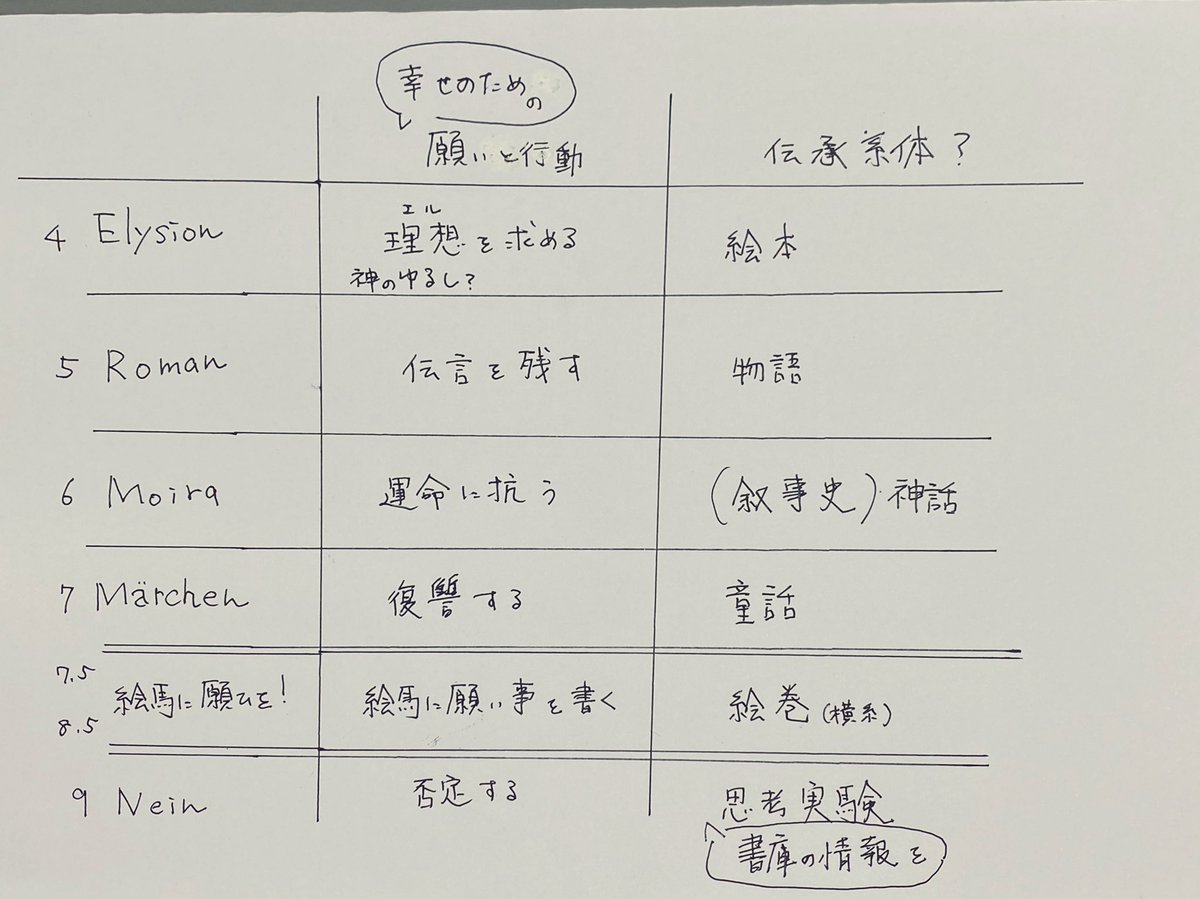 幸せのための
願いと行動
伝承系体?
4 Elysion
エル
理想を求める
神のゆるし?
絵本
5 Roman
伝言を残す
物語
6 Moira
運命に抗う
(叙事史)神話
7 Märchen
復讐する
童話
7.5
8.5
絵馬に願ひを!
絵馬に願い事を書く
絵巻(横系)
9 Nein
否定する
思考実験
書庫の情報を